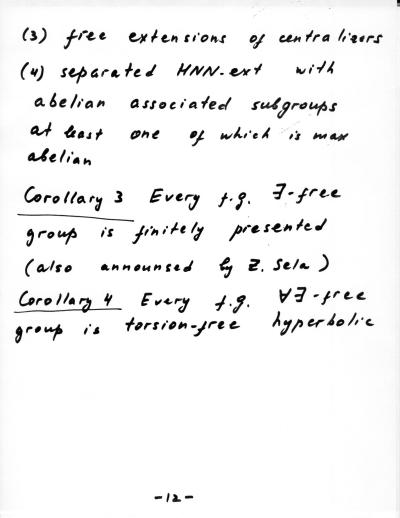 (3) free extensions of centralizers
(4) separated HNN-ext with
abelian associated subgroups
at least one of which is max
abelian
Corollary 3 Every f.g. ∃-free
group is finitely presented
(also announsed by Z. Sela)
Corollary 4 Every f.g. ∀∃-free
group is torsion-free hyperbolic
-12-